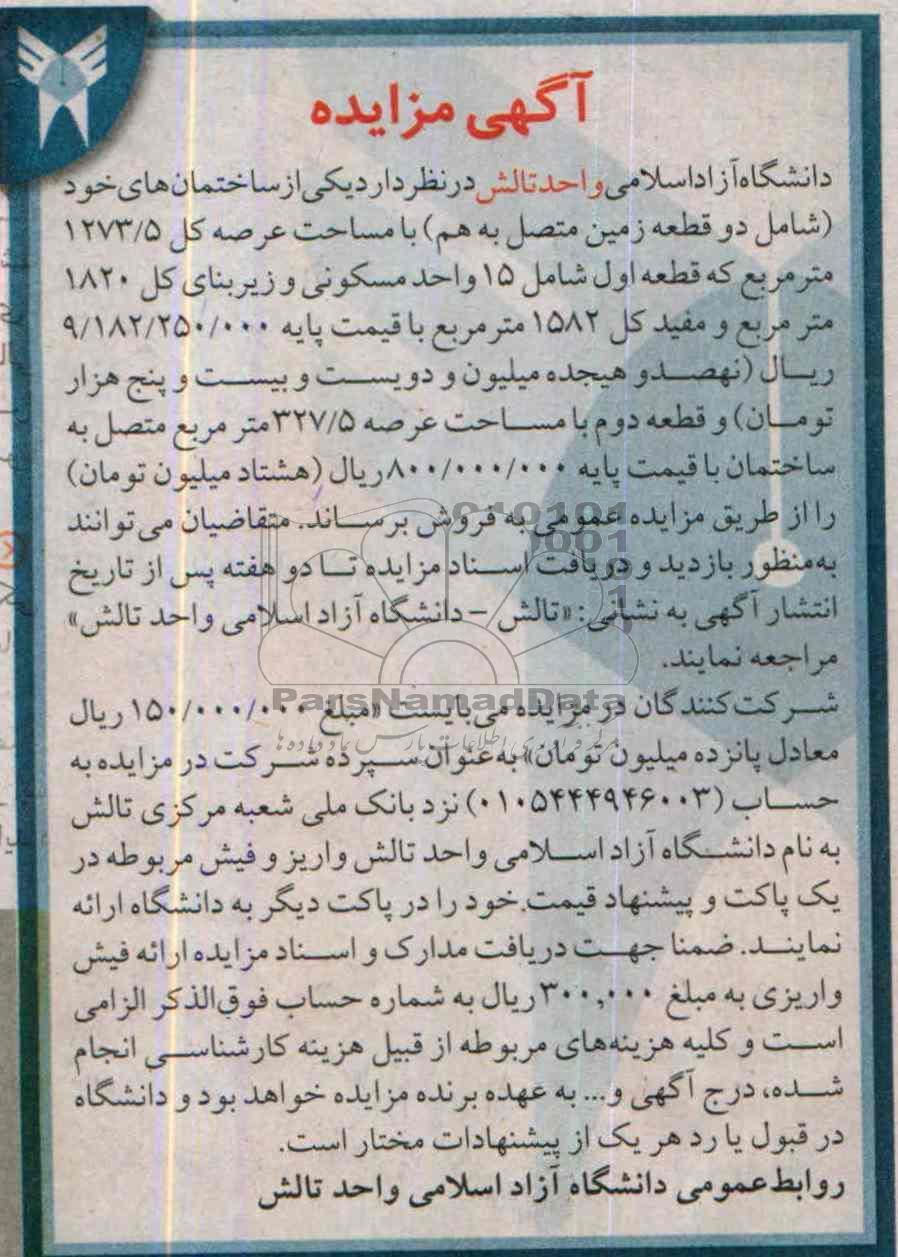 آگهی مزایده
دانشگاه آزاد اسلامی واحد تالش در نظر دارد یکی از ساختمان های خود
(شامل دو قطعه زمین متصل به هم) با مساحت عرصه کل ۱۲۷۳/۵
متر مربع که قطعه اول شامل ۱۵ واحد مسکونی و زیربنای کل ۱۸۲۰
متر مربع و مفید کل ۱۵۸۲ متر مربع با قیمت پایه ۹/۱۸۲/۲۵۰/۰۰۰
ریال (نهصدو هیجده میلیون و دویست و بیست و پنج هزار
تومان) و قطعه دوم با مساحت عرصه ۳۲۷/۵ متر مربع متصل به
ساختمان با قیمت پایه ۸۰۰/۰۰۰/۰۰۰ ریال (هشتاد میلیون تومان)
را از طریق مزایده عمومی به فروش برساند. متقاضیان می توانند
به منظور بازدید و دریافت اسناد مزایده تا دو هفته پس از تاریخ
انتشار آگهی به نشانی: «تالش – دانشگاه آزاد اسلامی واحد تالش»
مراجعه نمایند.
ParsNamadData
شرکت کنندگان در مزایده می بایست «مبلغ ۱۵۰/۰۰۰/۰۰۰ ریال
معادل پانزده میلیون تومان» به عنوان سپرده شرکت در مزایده به
حساب (۰۱۰۵۴۴۴۹۴۶۰۰۳) نزد بانک ملی شعبه مرکزی تالش
به نام دانشگاه آزاد اسلامی واحد تالش واریز و فیش مربوطه در
یک پاکت و پیشنهاد قیمت خود را در پاکت دیگر به دانشگاه ارائه
نمایند. ضمنا جهت دریافت مدارک و اسناد مزایده ارائه فیش
واریزی به مبلغ ۳۰۰,۰۰۰ ریال به شماره حساب فوق الذکر الزامی
است و کلیه هزینه های مربوطه از قبیل هزینه کارشناسی انجام
شده، درج آگهی و... به عهده برنده مزایده خواهد بود و دانشگاه
در قبول یا رد هر یک از پیشنهادات مختار است.
روابط عمومی دانشگاه آزاد اسلامی واحد تالش